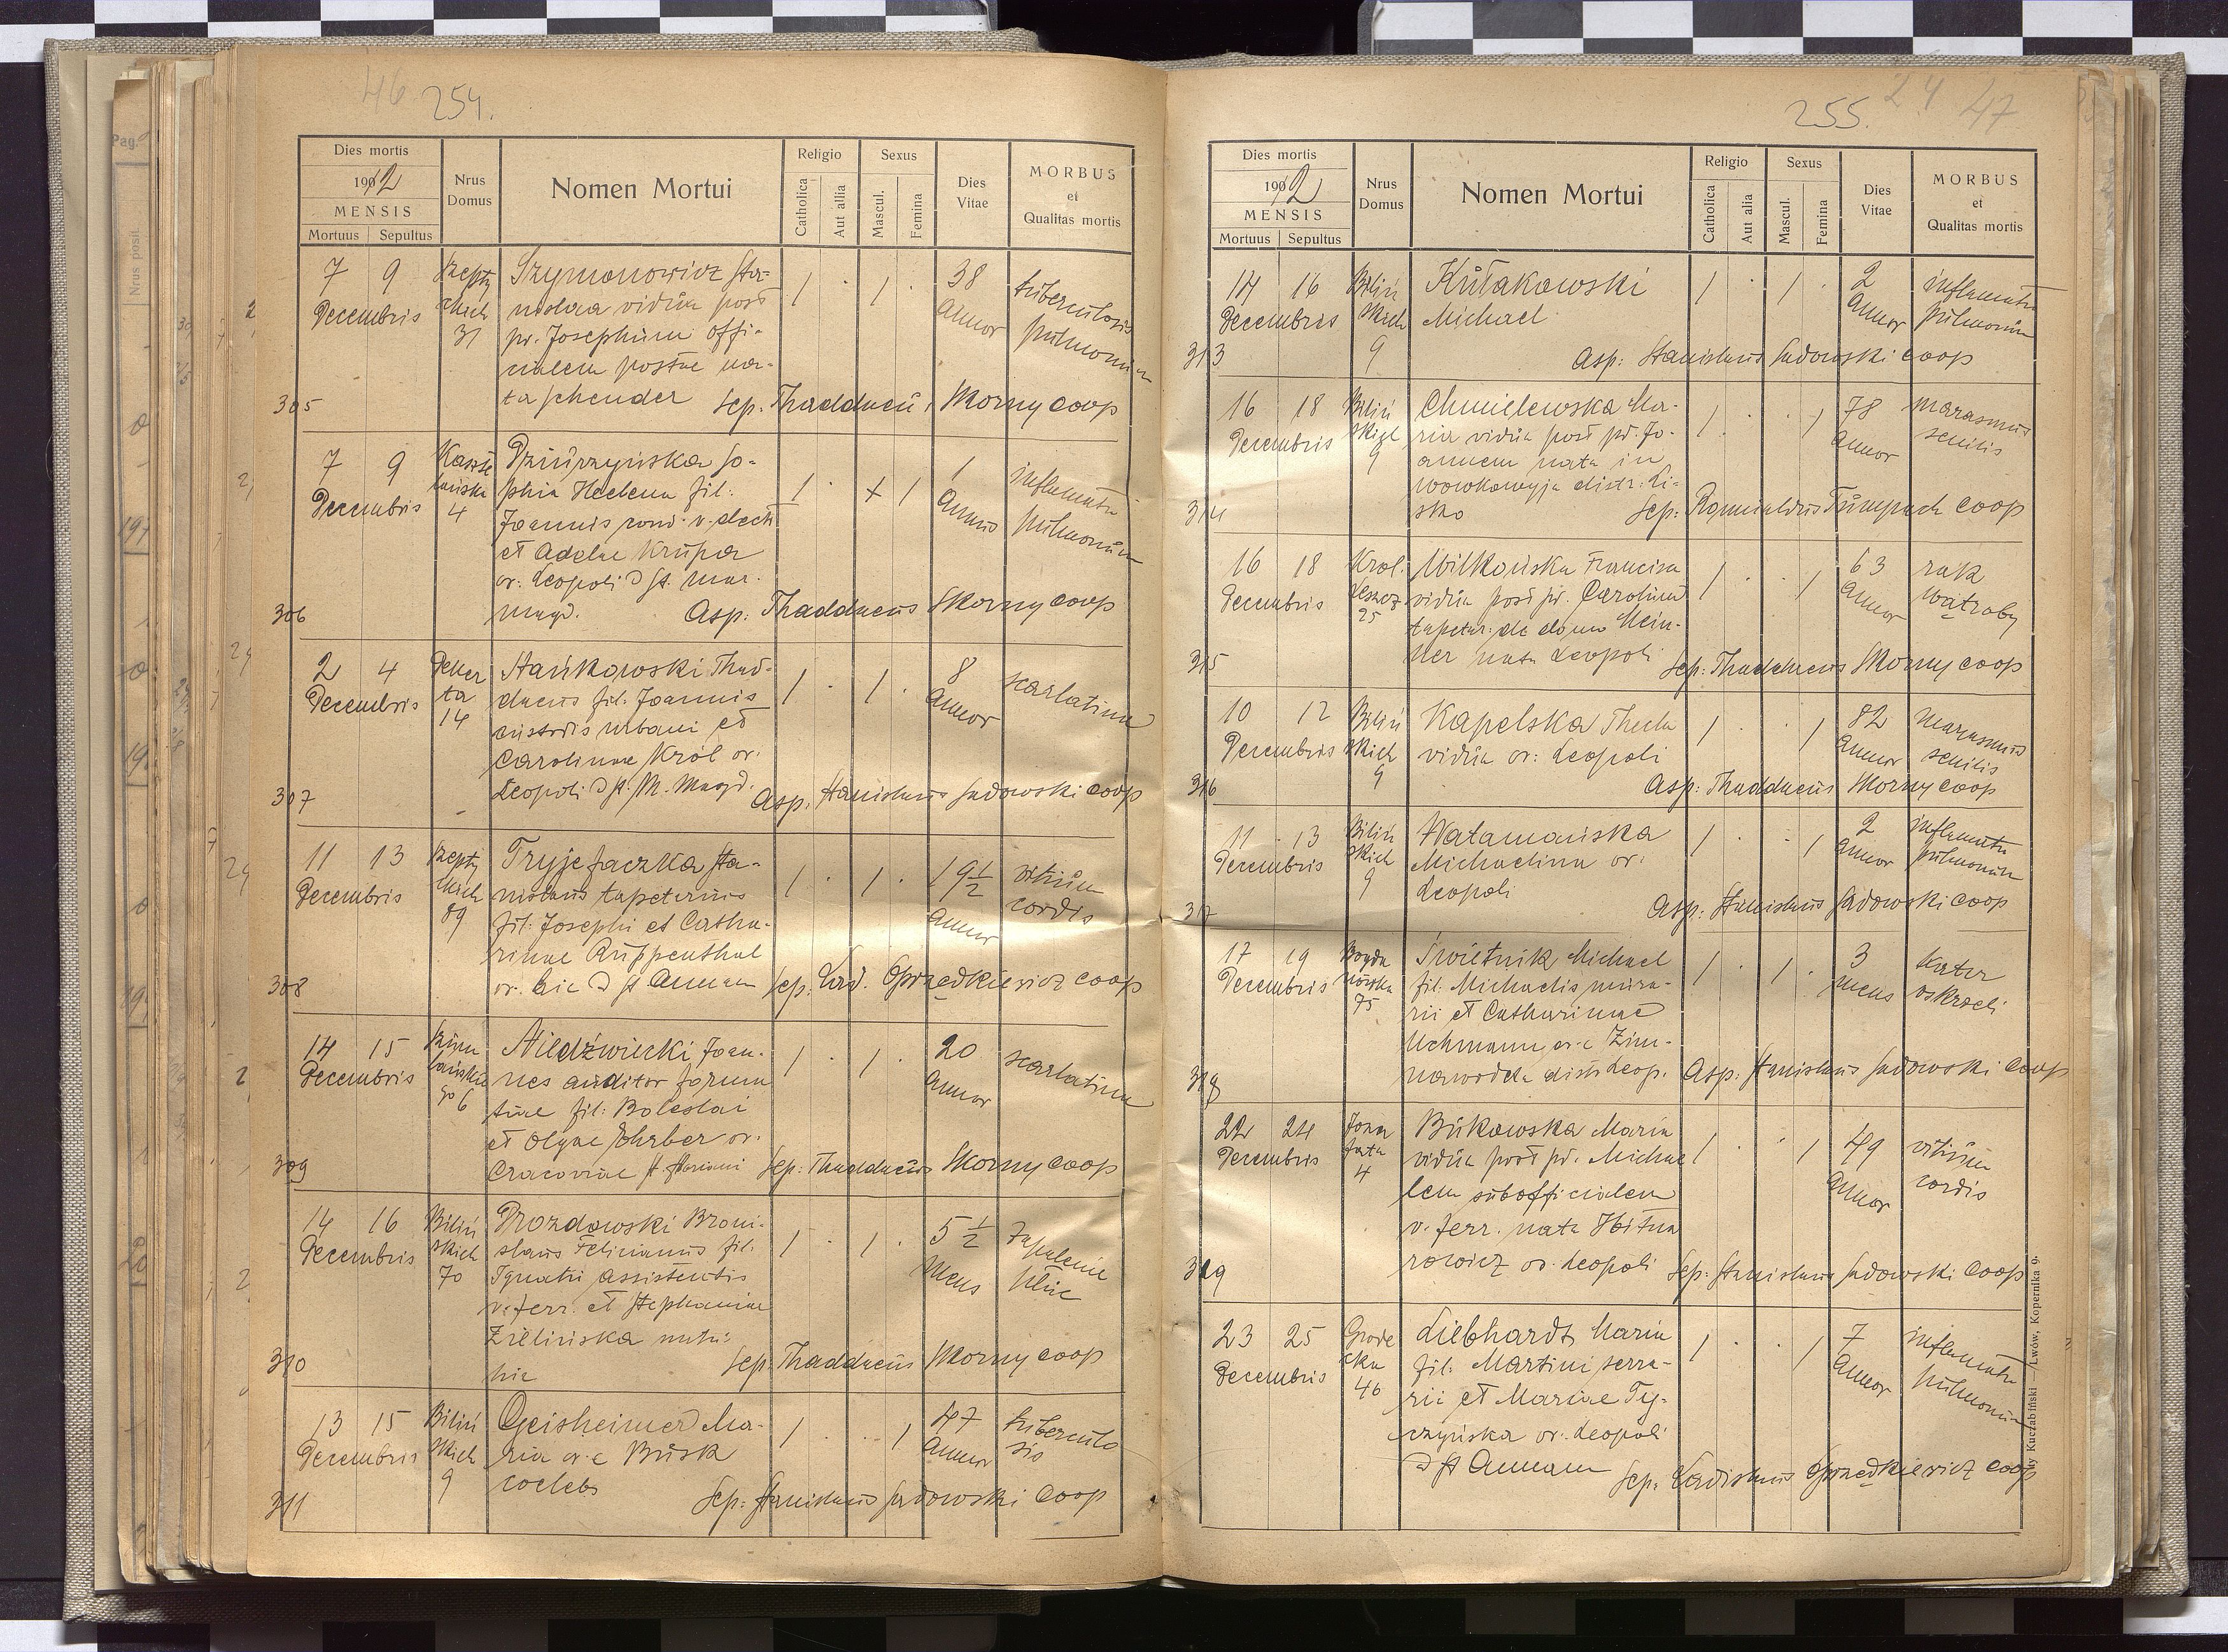 46 254.
Dies mortis
1912
MENSIS
Mortuus Sepultus
Nrus Domus
Nomen Mortui
Religio
Catholica
Aut alia
Sexus
Mascul.
Femina
Dies Vitae
MORBUS
et
Qualitas mortis
305
7 9 Decembris
31
Szymonowicz Sta-
nislaa vidua post
pr. Josephum offi-
cialem postae na-
ta Schender
1 . 1 .
38 Annor
tuberculosis pulmonum
Sep. Thaddaeus Skorny coop
306
7 9 Decembris
4
phia Helena fil:
et Adelae Krupa
or: Leopoli
magd.
1 . + 1
1 Annus
inflamatio pulmonum
Asp: Thaddaeus Skorny coop
307
2 4 Decembris
Dekerta 14
Stańkowski Thad-
daeus fil. Joannis
custodis urbani et
Carolinae Król or.
Leopoli d St. M. Magd.
1 . 1 .
8 Annor
scarlatina
Asp. Stanislaus Sadowski coop
308
11 13 Decembris
89
nislaus tapeterius
fil: Josephi et Catha-
rinae Ruppenthal
or. hic d St Annam
1 . 1 .
19 1/2 Annor
vitium cordis
Sep. Lad. Oprzędkiewicz coop
309
14 15 Decembris
6
Niedźwiecki Joan-
nes auditor farma-
fil: Boleslai
et Olgae Ehrber or.
Cracoviae St Floriani
1 . 1 .
20 Annor
scarlatina
Sep: Thaddaeus Skorny coop
310
14 16 Decembris
Bilińskich 70
Drozdowski Broni-
slaus Felicianus fil.
Ignatii assistentis
v. ferr. et Stephaniae
Zielińska nata
hic
1 . 1 .
5 1/2 Mens
zapalenie
Sep. Thaddaeus Skorny coop
311
13 15 Decembris
Bilińskich 9
Geisheimer Ma-
ria or. e Busk
coelebs
1 . . 1
47 Annor
tuberculosis
Sep: Stanislaus Sadowski coop
255. 24 47
Dies mortis
1912
MENSIS
Mortuus Sepultus
Nrus Domus
Nomen Mortui
Religio
Catholica
Aut alia
Sexus
Mascul.
Femina
Dies Vitae
MORBUS
et
Qualitas mortis
313
14 16 Decembris
Bilińskich 9
Kułakowski
Michael
1 . 1 .
2 Annor
inflamatio pulmonum
Asp: Stanislaus Sadowski coop
314
16 18 Decembris
Bilińskich 9
Chmielewska Ma-
ria vidua post pr. Jo-
annem nata in
Wowkowyja distr: Li-
sko
1 . . 1
78 Annor
marasmus senilis
Sep: Romualdus coop
315
16 18 Decembris
25
Wilkońska Francisca
vidua post pr. Carolum
tapetar: de domo
nata Leopoli
1 . . 1
63 Annor
rak wątroby
Sep: Thaddaeus Skorny coop
316
10 12 Decembris
Bilińskich 9
Kapelska Thecla
vidua or: Leopoli
1 . . 1
82 Annor
marasmus senilis
Asp: Thaddaeus Skorny coop
317
11 13 Decembris
Bilińskich 9
Watamańska
Michaelina or.
Leopoli
1 . . 1
2 Annor
inflamatio pulmonum
Asp: Stanislaus Sadowski coop
318
17 19 Decembris
Bogdanówka 75
Świetnik Michael
fil. Michaelis mura-
rii et Catharinae
Uchmann or. e Zim-
nawodka distr Leop.
1 . 1 .
3 mens
katar oskrzeli
Asp: Stanislaus Sadowski coop
319
22 24 Decembris
4
Bukowska Maria
vidua post pr. Michae
lem subofficialem
v. ferr. nata
or. Leopoli
1 . . 1
49 Annor
vitium cordis
Sep: Stanislaus Sadowski coop
23 25 Decembris
Grodecka 46
Liebhardt Maria
fil: Martini serra-
rii et Mariae Ty-
czyńska or. Leopoli
d St Annam
1 . . 1
7 Annor
inflamatio pulmonum
Sep. Ladislaus Oprzędkiewicz coop
Kuczabiński — Lwów, Kopernika 9.
Pag.
Nrus posit.